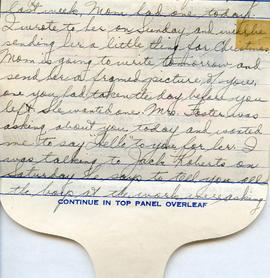 last week, Mom had one today.
I wrote to her on Sunday and we're
sending her a little thing for Christmas
Mom is going to write tomorrow and
send her a framed picture of you,
one you had taken the day before you
left. She wanted one. Mrs. Foster was
asking about you today and wanted
me to say Hello to you for her. I
was talking to Jack Roberts on
Saturday he says to tell you all
the boys at the work were asking
CONTINUE IN TOP PANEL OVERLEAF